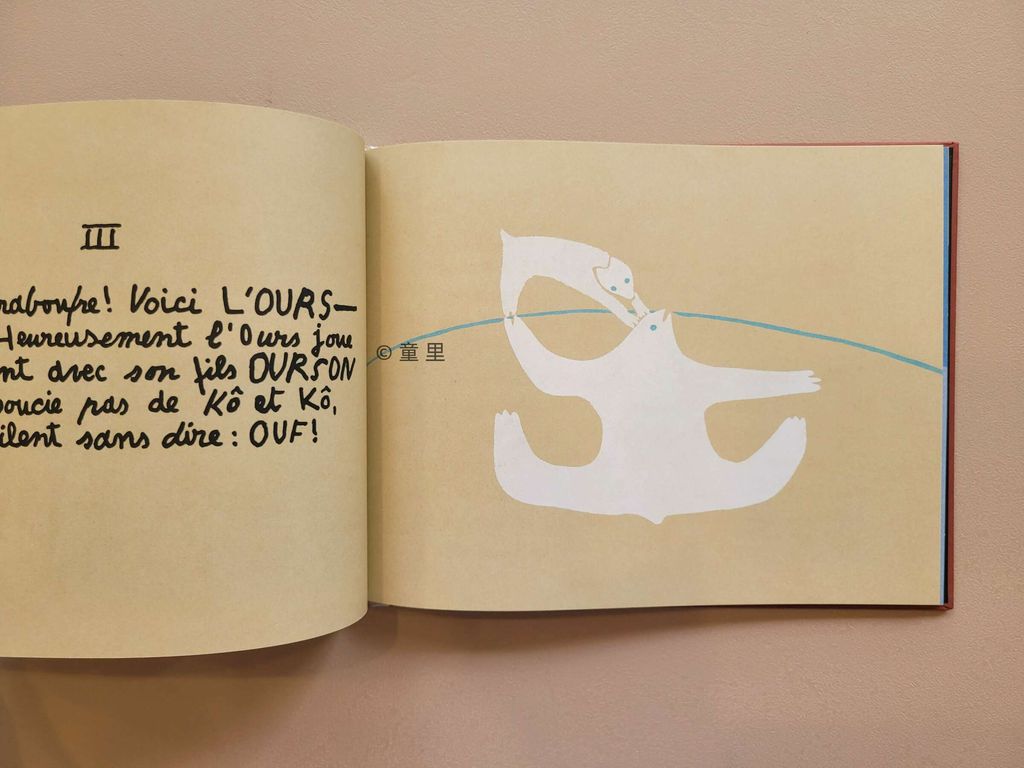 III
raboufre! Voici L'OURS—
Heureusement l'Ours joue
nt avec son fils OURSON
soucie pas de Kô et Kô,
ilent sans dire : OUF!
© 童里